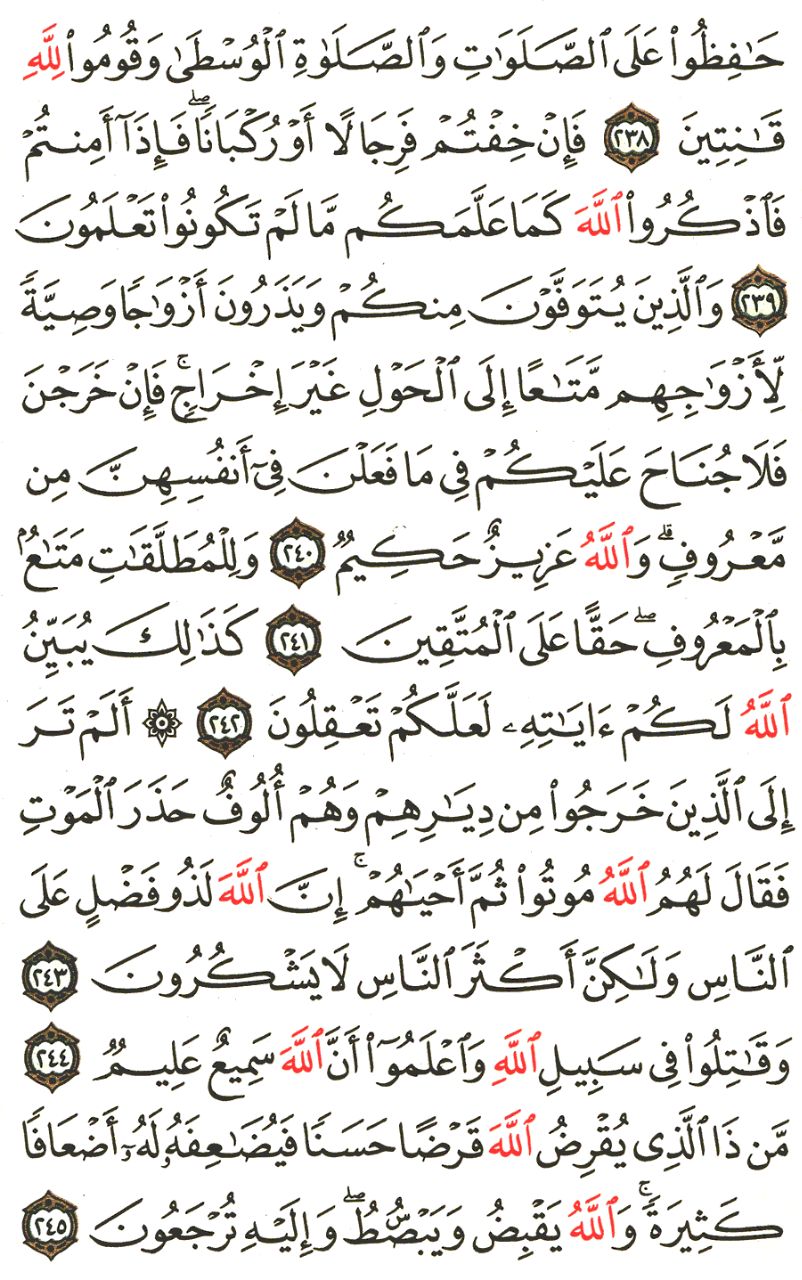 حَـٰفِظُوا۟ عَلَى ٱلصَّلَوَٰتِ وَٱلصَّلَوٰةِ ٱلْوُسْطَىٰ وَقُومُوا۟ لِلَّهِ
قَـٰنِتِينَ ٢٣٨ فَإِنْ خِفْتُمْ فَرِجَالًا أَوْ رُكْبَانًا ۖ فَإِذَآ أَمِنتُمْ
فَٱذْكُرُوا۟ ٱللَّهَ كَمَا عَلَّمَكُم مَّا لَمْ تَكُونُوا۟ تَعْلَمُونَ
٢٣٩ وَٱلَّذِينَ يُتَوَفَّوْنَ مِنكُمْ وَيَذَرُونَ أَزْوَٰجًا وَصِيَّةً
لِّأَزْوَٰجِهِم مَّتَـٰعًا إِلَى ٱلْحَوْلِ غَيْرَ إِخْرَاجٍ ۚ فَإِنْ خَرَجْنَ
فَلَا جُنَاحَ عَلَيْكُمْ فِى مَا فَعَلْنَ فِىٓ أَنفُسِهِنَّ مِن
مَّعْرُوفٍ ۗ وَٱللَّهُ عَزِيزٌ حَكِيمٌ ٢٤٠ وَلِلْمُطَلَّقَـٰتِ مَتَـٰعٌۢ
بِٱلْمَعْرُوفِ ۖ حَقًّا عَلَى ٱلْمُتَّقِينَ ٢٤١ كَذَٰلِكَ يُبَيِّنُ
ٱللَّهُ لَكُمْ ءَايَـٰتِهِۦ لَعَلَّكُمْ تَعْقِلُونَ ٢٤٢ ۞ أَلَمْ تَرَ
إِلَى ٱلَّذِينَ خَرَجُوا۟ مِن دِيَـٰرِهِمْ وَهُمْ أُلُوفٌ حَذَرَ ٱلْمَوْتِ
فَقَالَ لَهُمُ ٱللَّهُ مُوتُوا۟ ثُمَّ أَحْيَـٰهُمْ ۚ إِنَّ ٱللَّهَ لَذُو فَضْلٍ عَلَى
ٱلنَّاسِ وَلَـٰكِنَّ أَكْثَرَ ٱلنَّاسِ لَا يَشْكُرُونَ ٢٤٣
وَقَـٰتِلُوا۟ فِى سَبِيلِ ٱللَّهِ وَٱعْلَمُوٓا۟ أَنَّ ٱللَّهَ سَمِيعٌ عَلِيمٌ ٢٤٤
مَّن ذَا ٱلَّذِى يُقْرِضُ ٱللَّهَ قَرْضًا حَسَنًا فَيُضَـٰعِفَهُۥ لَهُۥٓ أَضْعَافًا
كَثِيرَةً ۚ وَٱللَّهُ يَقْبِضُ وَيَبْصُۜطُ ۖ وَإِلَيْهِ تُرْجَعُونَ ٢٤٥